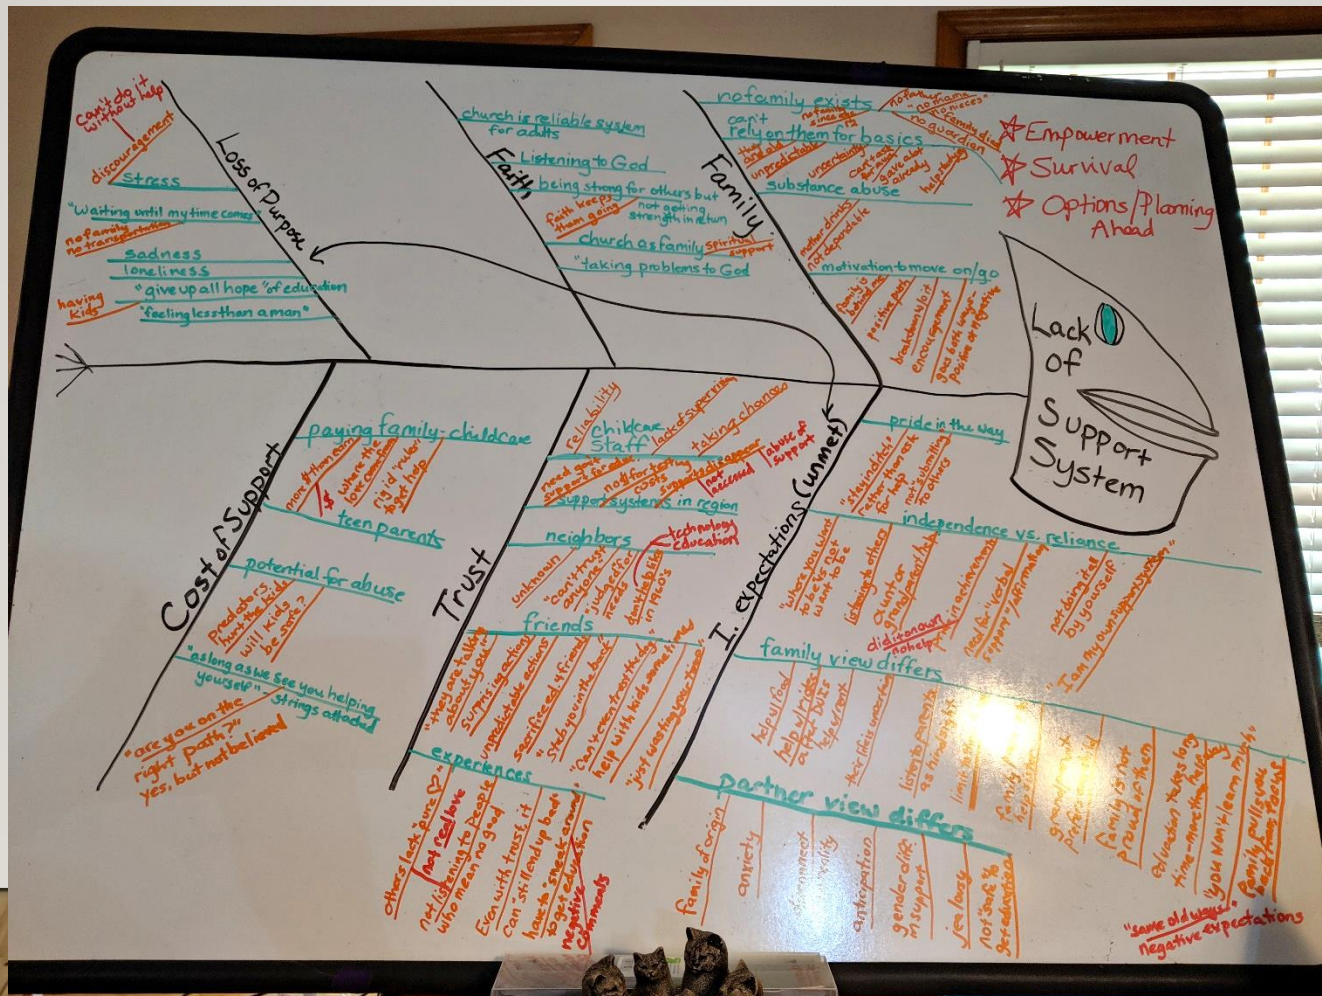 can't do it
without help
discouragement
stress
"Waiting until my time comes"
no family
no transportation
sadness
loneliness
"give up all hope" of education
having
kids
"feeling less than a man"
Loss of Purpose
church is reliable system
for adults
Listening to God
being strong for others but
not getting
strength in return
faith keeps
them going
church as family
spiritual
support
"taking problems to God
Faith
no family exists
no father
"no mama"
no nieces"
family died
no guardian
can't
rely on them for basics
unpredictable
uncertainty
gave a lot
already
substance abuse
mother drinks
not dependable
motivation to move on/go
family is
behind me
positive path
breakdown w/o it
encouragement
goes both ways-
positive or negative
Family
☆ Empowerment
☆ Survival
☆ Options/Planning
Ahead
Lack
of
Support
System
paying family-childcare
more $ than earn
$
where the
love come from
rigid "rules"
to get help
teen parents
potential for abuse
predators
hunt the kids
will kids
be safe?
"as long as we see you helping
yourself" - strings attached
"are you on the
right path?"
yes, but not believed
Cost of Support
reliability
childcare
staff
lack of supervision
taking chances
need gov't
support for educ
not for tering
costs
support disappear
not
accessed
abuse of
support
support systems in region
neighbors
technology
education
unknown
"can't trust
anyone"
"judged for
needs"
didn't help Els
in 1960's
friends
"they are talking
about you"
surprising actions
unpredictable actions
sacrificed 4 friends
"stab you in the back"
"Can't even trust the dog"
help with kids sometimes
"just wasting your time"
experiences
others lack "pure ♡"
not real love
not listening to people
who mean no good
Even with trust, it
can still end up bad
have to "sneek around"
to get education
negative
comments
Trust
pride in the way
"stay in ditch"
rather than ask
for help
not "submitting"
to others
independence vs. reliance
"where you want
to be vs not
want to be
listening to others
aunt or
grandparent help
pride in achievement
did it on own
no help
need for "verbal
support"/affirmation
not doing it all
by yourself
"I am my own support system"
family view differs
help w/food
help w/rides
after DUI's
help w/rent
their life is unaffected
listen to parents
as hindsight
family is not
proud of them
education takes long
time - more than help
"you won't learn much"
family pulls you
back
"same old ways"
negative expectations
partner view differs
family of origin
anxiety
disconnect
anticipation
gender diff
in support
jealousy
not "safe" to
get education
I. expectations (unmet)